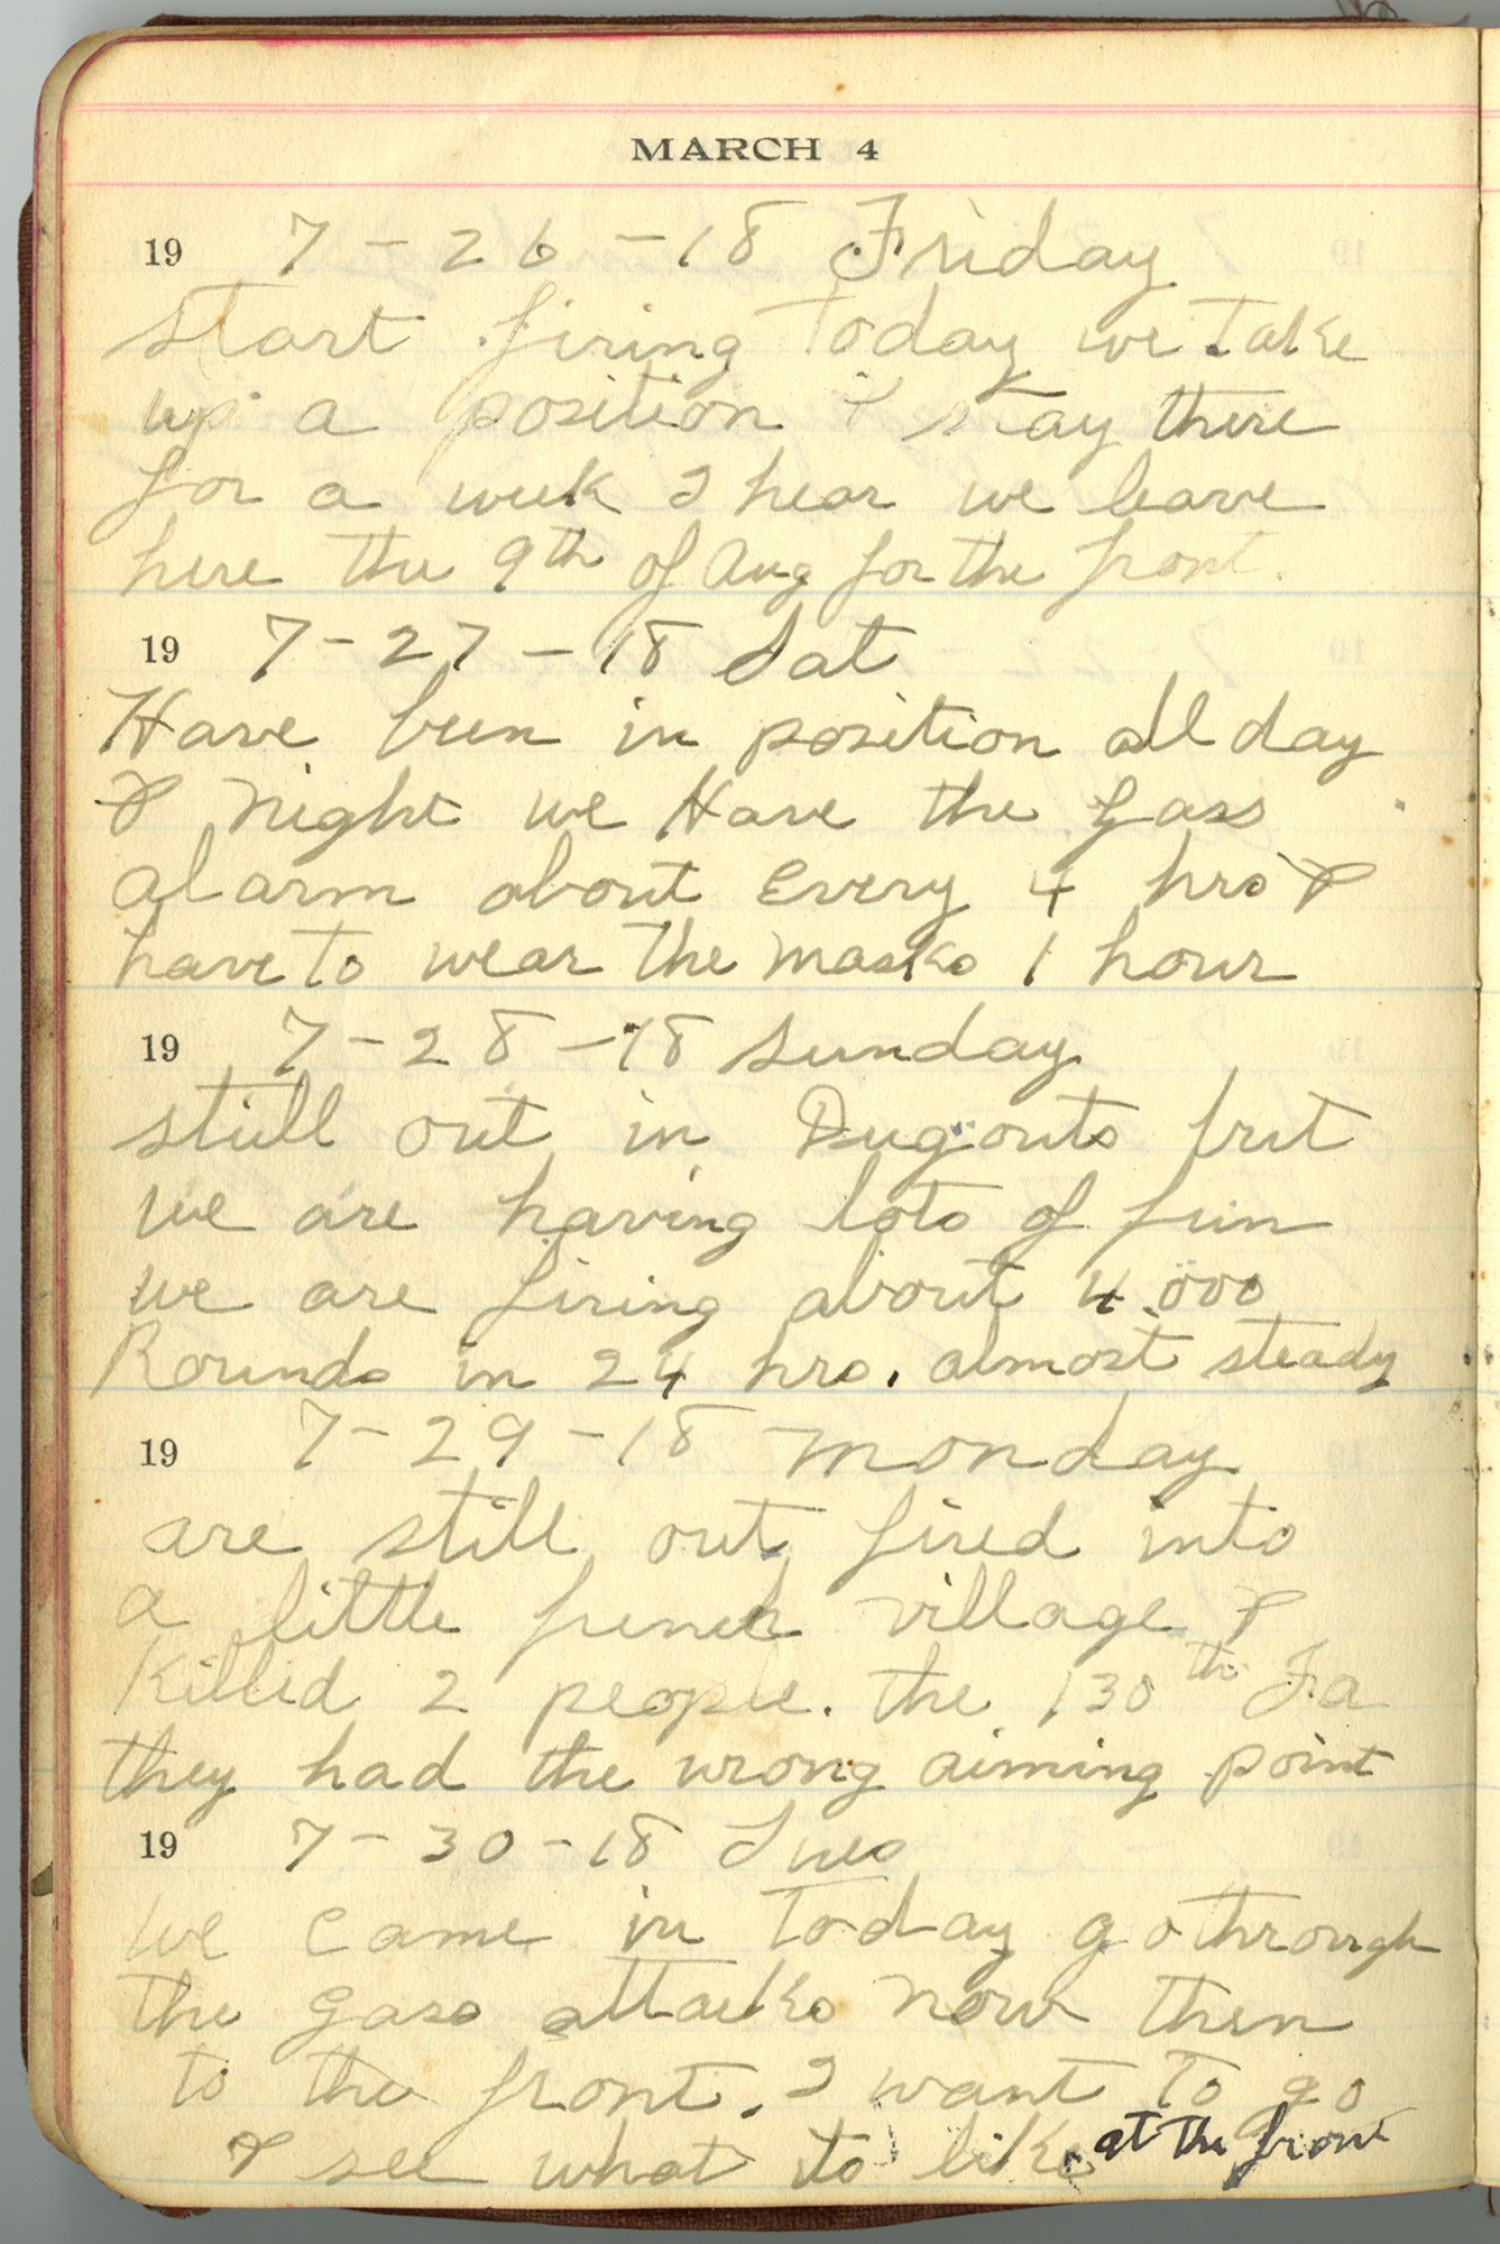 MARCH 4
19 7-26-18 Friday
start firing Today we take
up a position & stay there
for a week I hear we leave
here the 9th of Aug for the front.
19 7-27-18 Sat
Have been in position all day
& Night we Have the Gass
alarm about Every 4 hrs &
have to wear the masks 1 hour
19 7-28-18 Sunday
still out in Dugouts but
we are having lots of fun
we are firing about 4.000
Rounds in 24 hrs. almost steady
19 7-29-18 Monday
are still out fired into
a little french village &
Killed 2 people. the 130th Fa
they had the wrong aiming point
19 7-30-18 Tues
We Came in Today go through
the Gass attacks now then
to the front. I want To go
& see what its like at the front